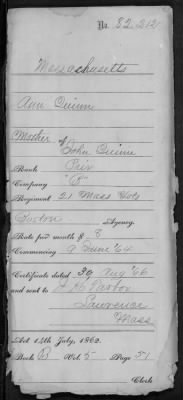 No. 82.212
Massachusetts
Ann Quinn
Mother of
John Quinn
Rank Priv
Company "B"
Regiment 21 Mass Vols
Boston Agency.
Rate per month $ 8
Commencing 9 June '64
Certificate dated 30 Aug '66
and sent to
Lawrence
Mass
Act 14th July, 1862.
Book B Vol. 5 Page 51
Clerk